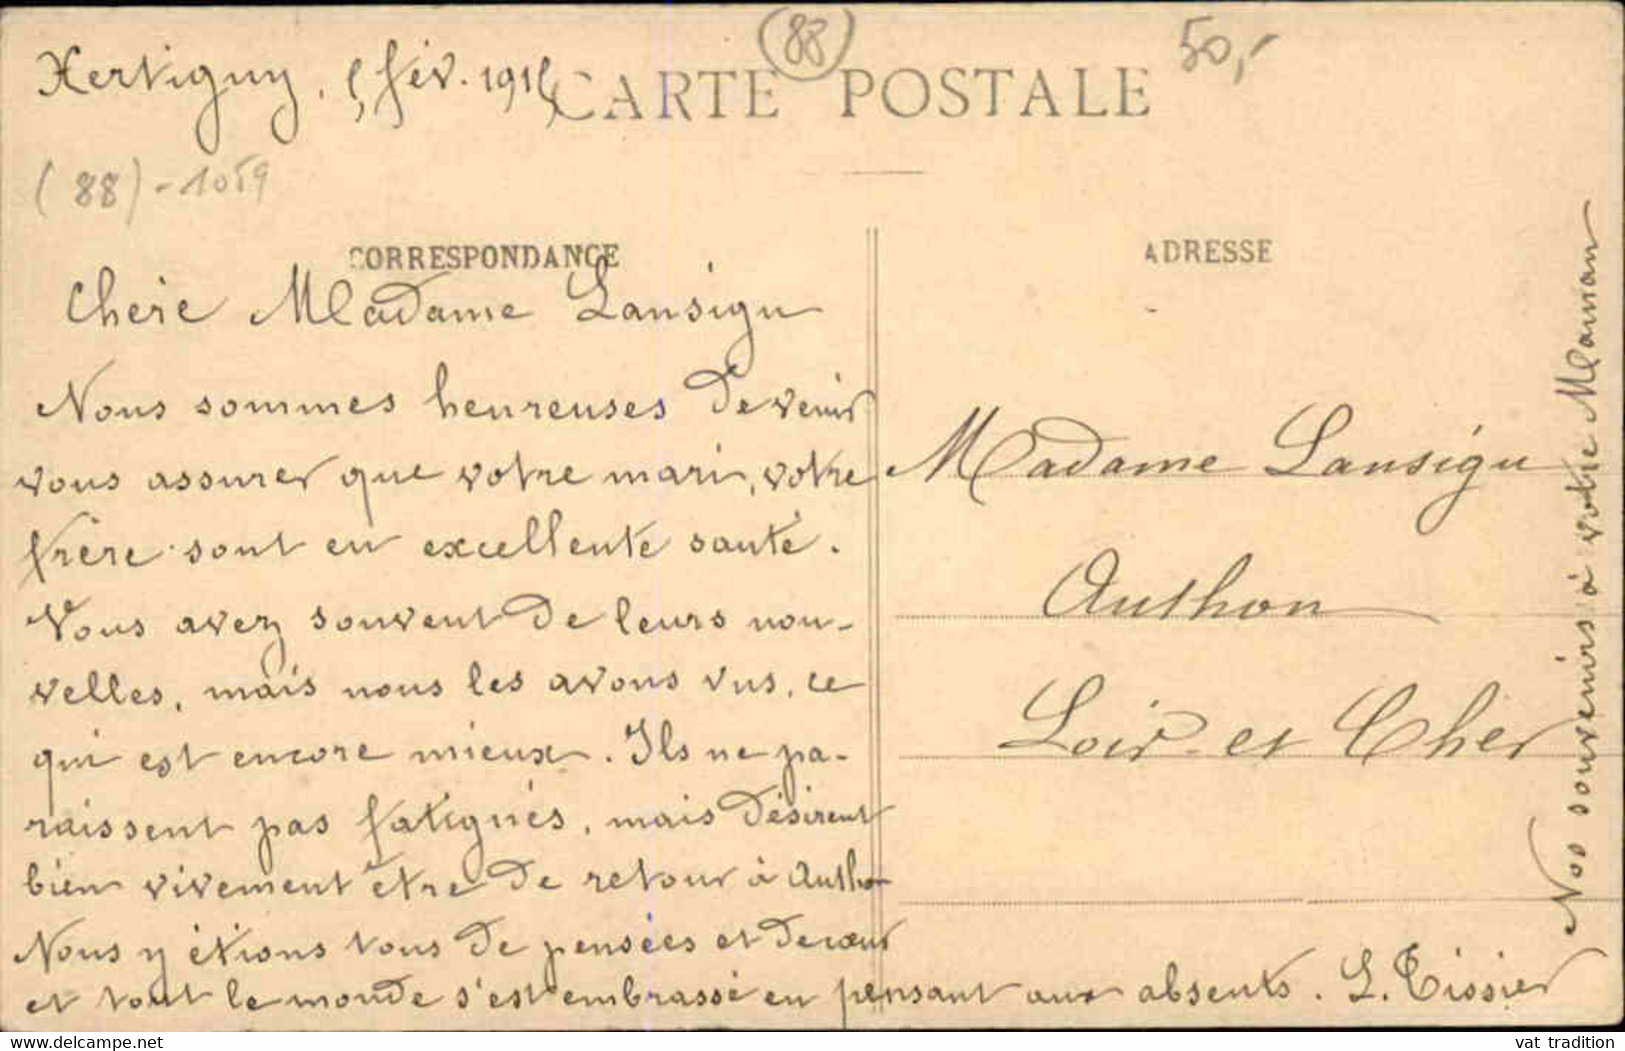 (88)
50,-
Xertigny, 5 fév. 1915
CARTE POSTALE
(88) - 1059
CORRESPONDANCE
ADRESSE
Chère Madame Lansigu
Nous sommes heureuses de venir
vous assurer que votre mari, votre
frère sont en excellente santé.
Vous avez souvent de leurs nou-
velles, mais nous les avons vus, ce
qui est encore mieux. Ils ne pa-
raissent pas fatignés, mais désirent
bien vivement être de retour à Autho
Nous y étions tous de pensées et de cœur
et tout le monde s'est embrassé en pensant aux absents. L. Tissier
Madame Lansigu
Authon
Loir-et Cher
Nos souvenirs à votre Maman
vat tradition